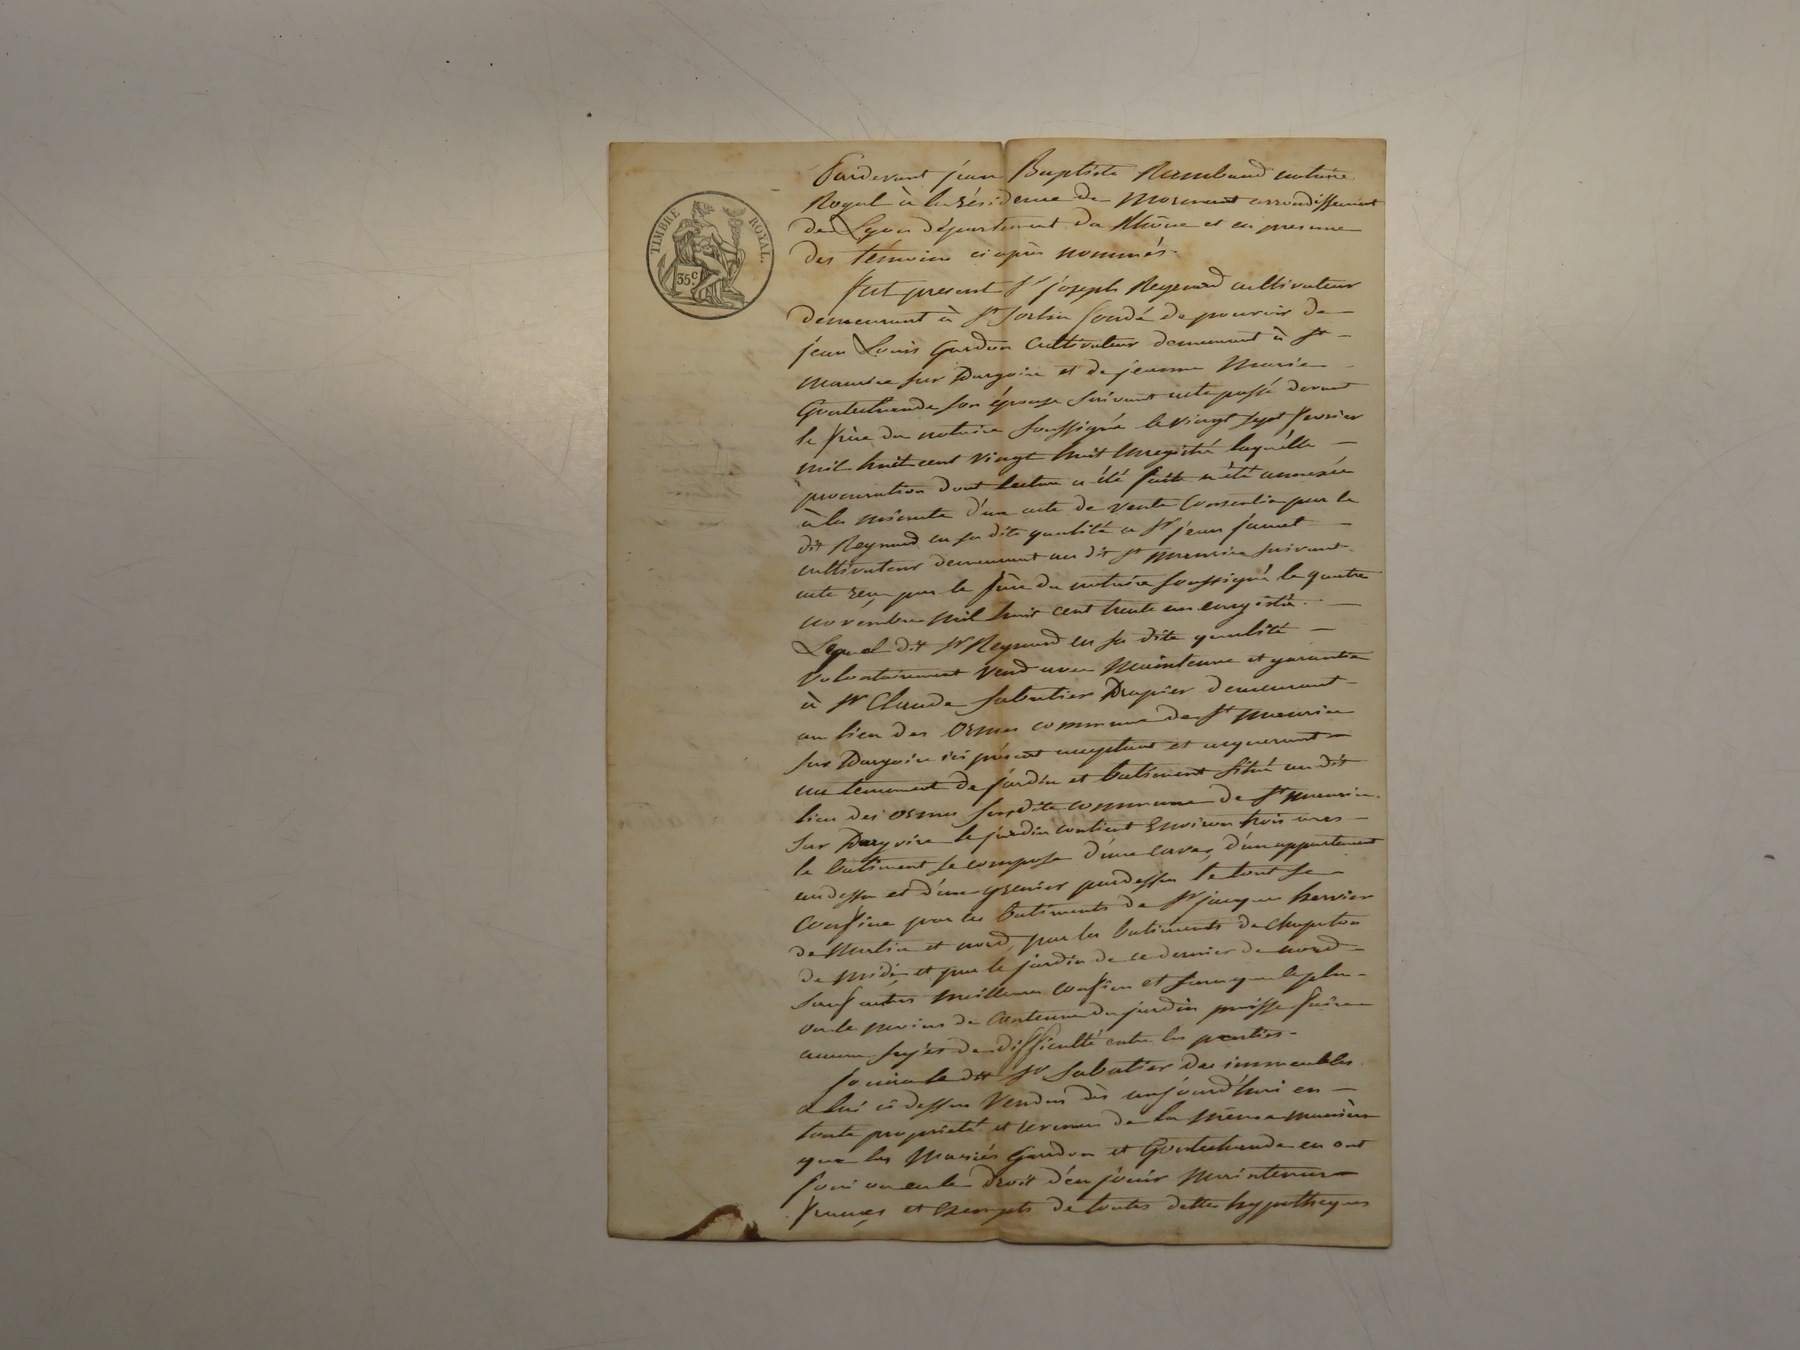 TIMBRE ROYAL.
35c.
Pardevant jean Baptiste Rambaud notaire
Royal à la résidence de Mornant arrondissement
de Lyon département du Rhône et en presence
des témoins ci après nommés.
fut present Sr joseph Reynard cultivateur
demeurant à St Sorlin fondé de pouvoir de
jean Louis Gardon cultivateur demeurant à St
maurice sur Dargoire et de jeanne Marie
son épouse suivant acte passé devant
le frère du notaire soussigné le vingt sept fevrier
mil huit cent vingt huit enregistré laquelle
procuration dont lecture a été faite a été annexée
à la minute d'un acte de vente consentie par le
dit Reynard en sa dite qualité a Sr jean
cultivateur demeurant au dit St maurice suivant
acte reçu par le frère du notaire soussigné le quatre
novembre mil huit cent trente un enregistré.
Lequel dit Sr Reynard en sa dite qualité
volontairement vend avec Maintenue et garantie
à Sr Claude Sabatier Drapier demeurant
au lieu des Ormes commune de St maurice
sur Dargoire ici présent acceptant et acquerant
un tenement de jardin et batiment situé au dit
lieu des ormes susdite commune de St maurice
sur Dargoire le jardin contient Environ trois ares
le batiment se compose d'une cave, d'un appartement
audessus et d'un grenier pardessus le tout se
confine par les batiments de Sr jacques
de Matin et nord, par les batiments de
de Midi, et par le jardin de ce dernier de nord
sauf autres meilleurs confins et sans que le plus
ou le moins de contenue du jardin puisse faire
aucun sujet de difficulté entre les parties.
jouira le dit Sr Sabatier des immeubles
a lui ci dessus Vendus dès aujourd'hui en
toute propriété et revenus de la même manière
que les Mariés Gardon et en ont
joui ou eu le droit d'en jouir Maintenus
francs et Exempts de toutes dettes hypotheques